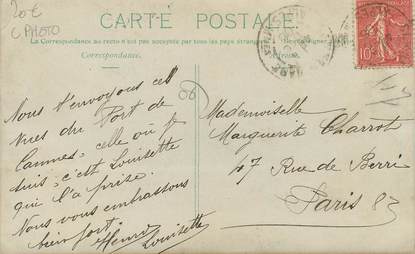 20€
C PHOTO
CARTE POSTALE
La Correspondance au recto n'est pas acceptée par tous les pays étrangers
Correspondance.
10
Nous t'envoyons cette
vues du Port de
Cannes: celle où je
suis: c'est Louisette
qui l'a prise.
Nous vous embrassons
bien fort.
Henri
Louisette
Mademoiselle
Marguerite Charrot
47 Rue de Berri
Paris